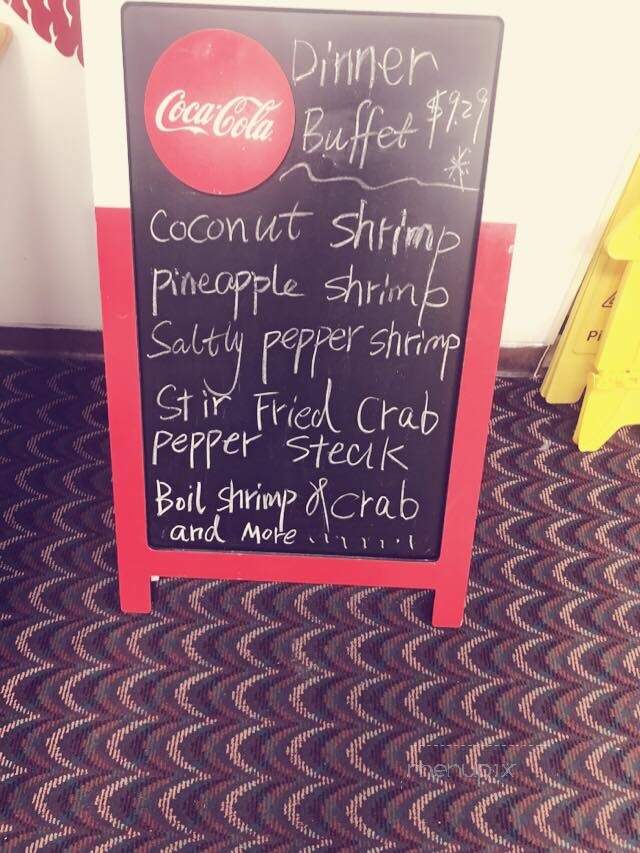 Coca-Cola
Dinner
Buffet $9.29
*
Coconut shrimp
pineapple shrimp
Saltly pepper shrimp
Stir Fried Crab
pepper steak
Boil shrimp & crab
and More .......
Pi
menupix